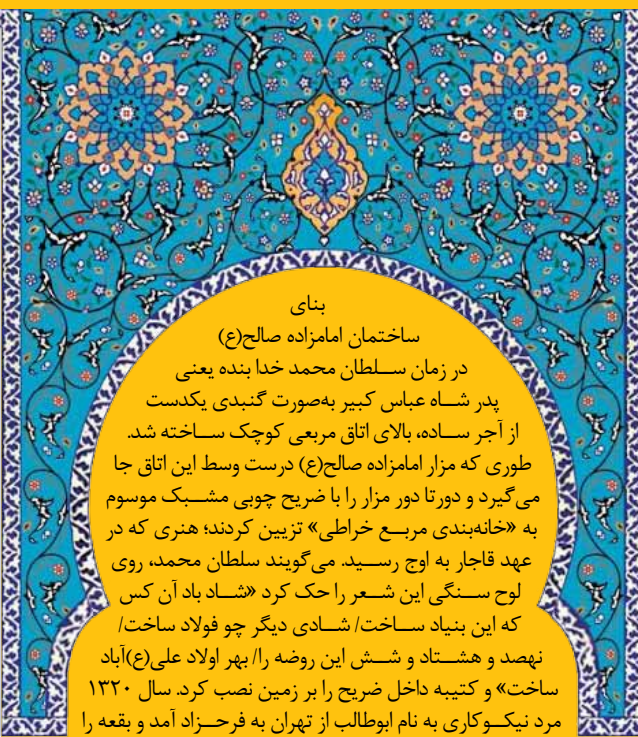 بنای
ساختمان امامزاده صالح(ع)
در زمان سلطان محمد خدا بنده یعنی
پدر شاه عباس کبیر به‌صورت گنبدی یکدست
از آجر ساده، بالای اتاق مربعی کوچک ساخته شد.
طوری که مزار امامزاده صالح(ع) درست وسط این اتاق جا
می‌گیرد و دورتا دور مزار را با ضریح چوبی مشبک موسوم
به «خانه‌بندی مربع خراطی» تزیین کردند؛ هنری که در
عهد قاجار به اوج رسید. می‌گویند سلطان محمد، روی
لوح سنگی این شعر را حک کرد «شاد باد آن کس
که این بنیاد ساخت/ شادی دیگر چو فولاد ساخت/
نهصد و هشتاد و شش این روضه را/ بهر اولاد علی(ع)آباد
ساخت» و کتیبه داخل ضریح را بر زمین نصب کرد. سال ۱۳۲۰
مرد نیکوکاری به نام ابوطالب از تهران به فرحزاد آمد و بقعه را